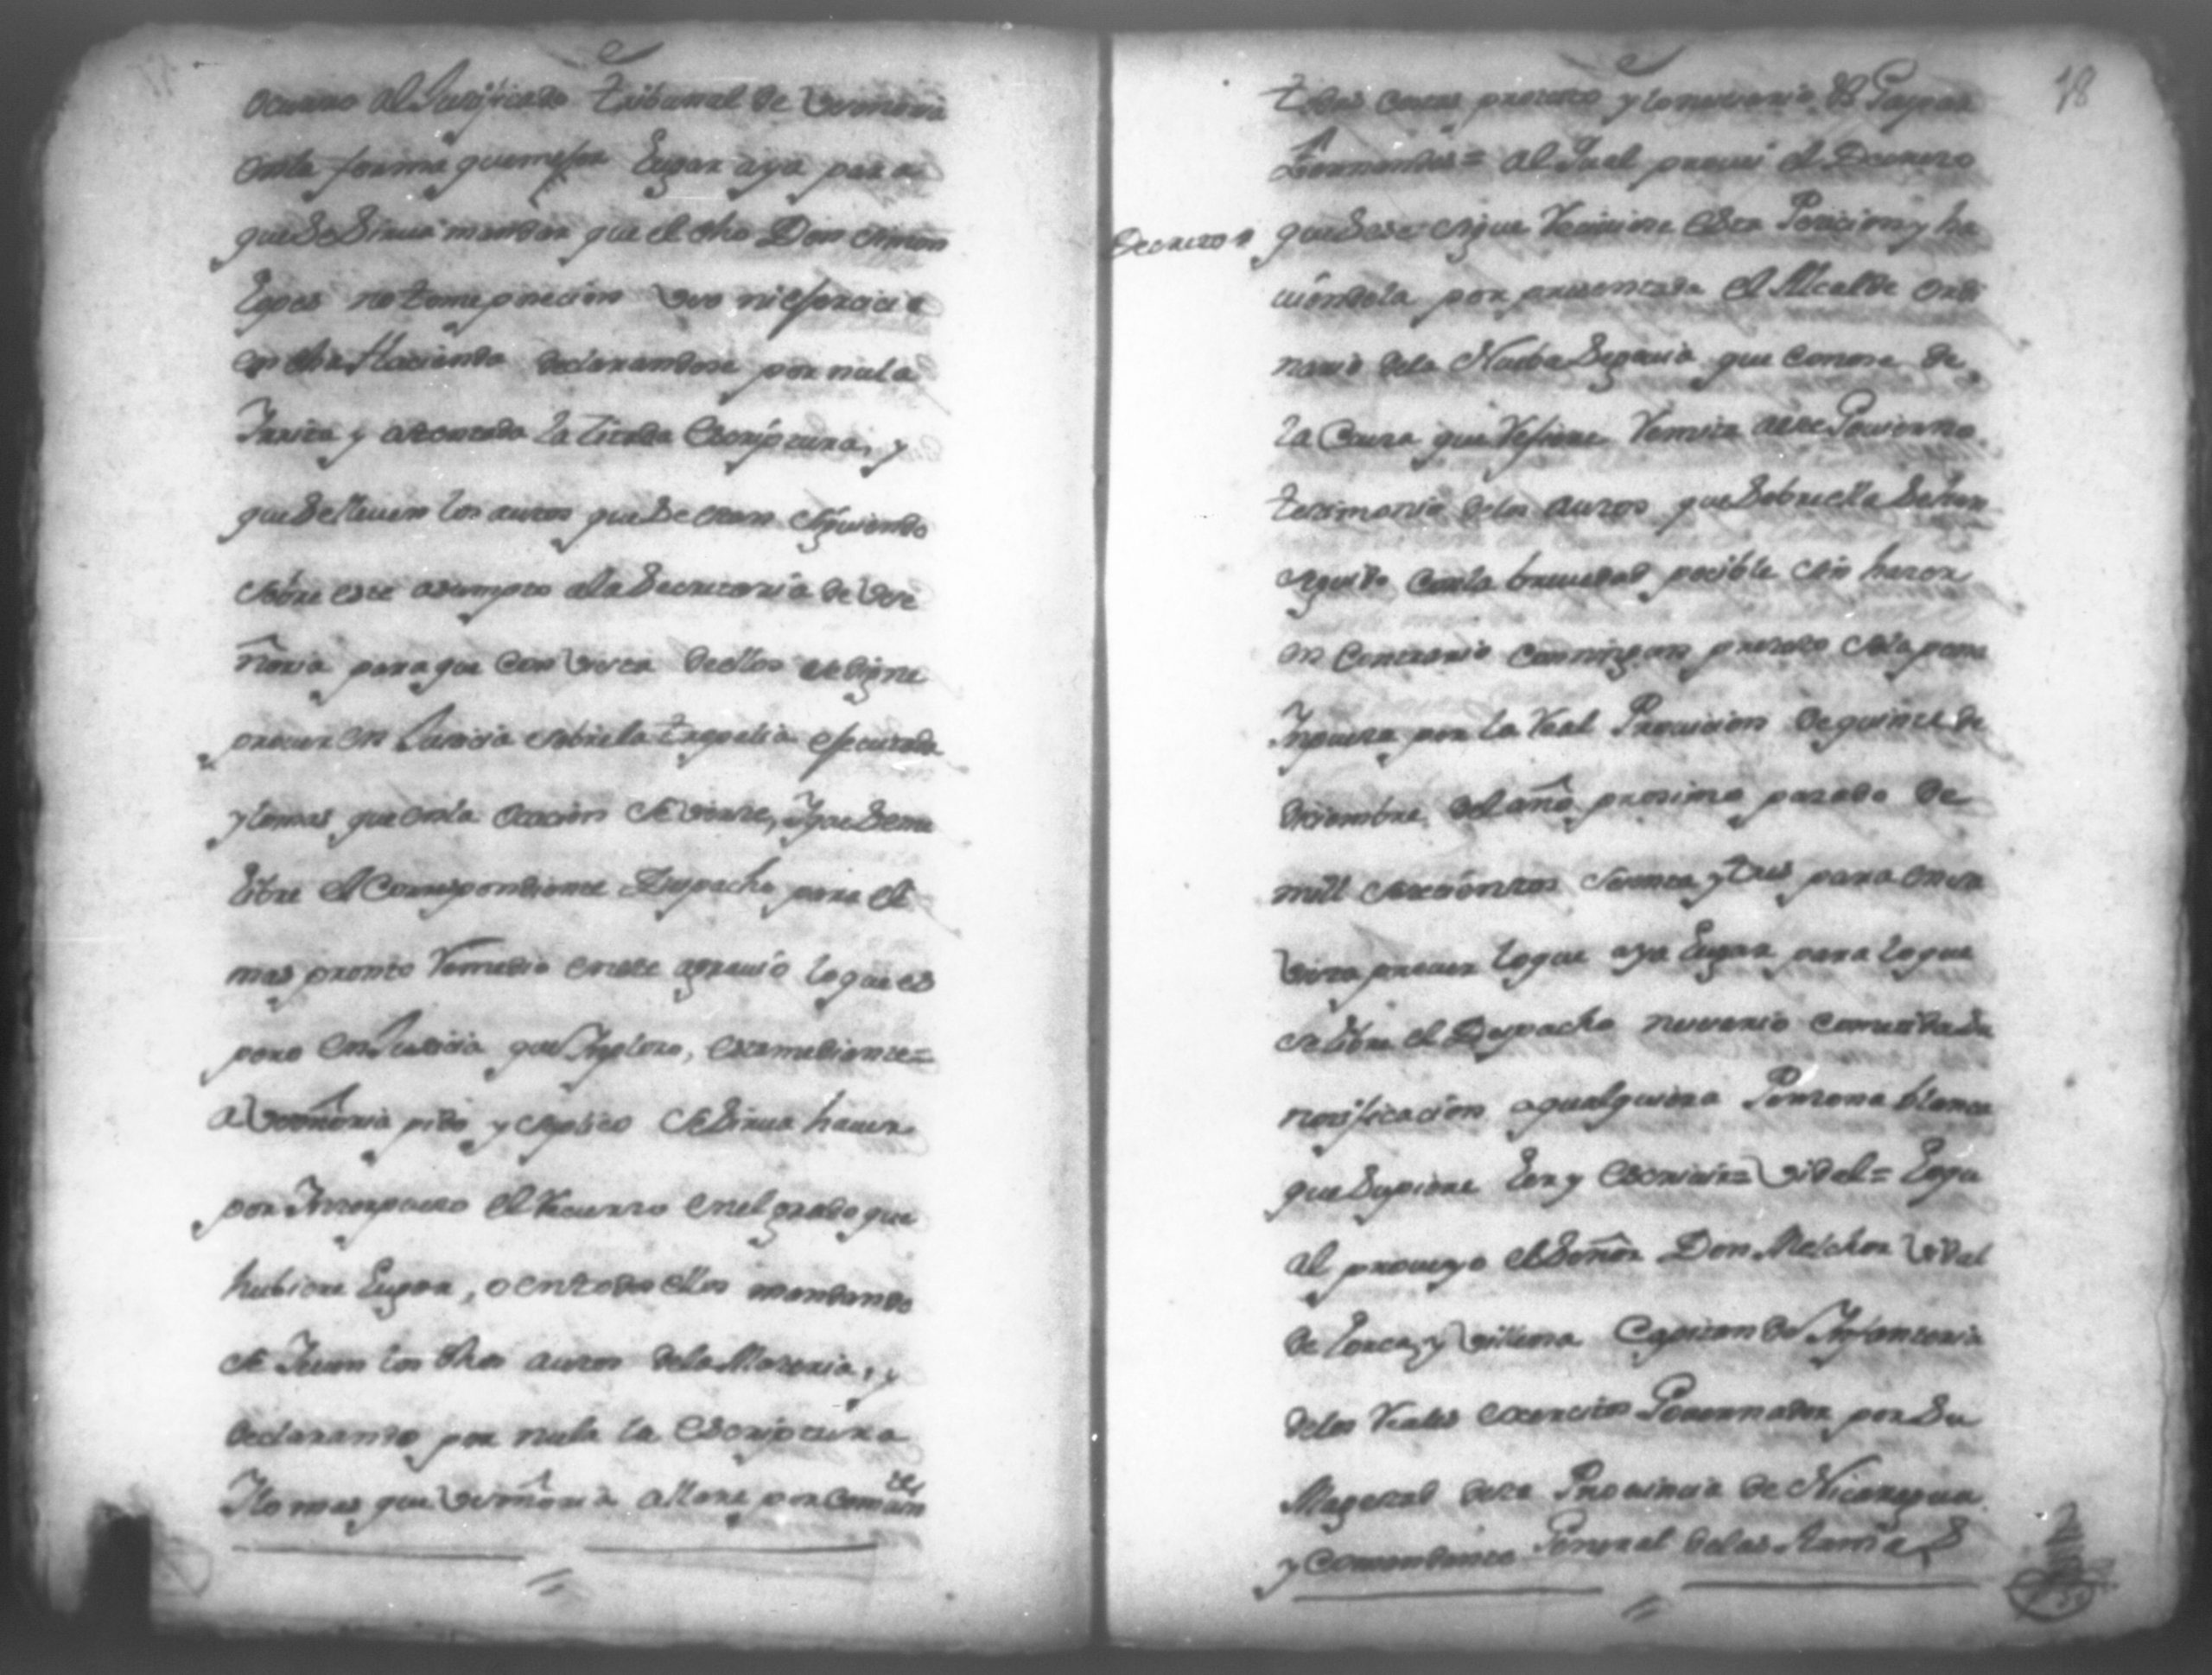 ocurro al Justificado tribunal de Vseñoria
enla forma quemejor Lugar aya para
queseSirva mandar que el dho Don Simon
Lopes notome poseción Vso niejercicio
en dha Hacienda declarandose por nula
Yrrita y atentada la Citada Escriptura, y
queselleven los autos queSe estan Siguiendo
sobre este asumpto ala Secretaria de Vse
ñoria paraque con vista deellos sedigne
proveer en Justicia sobrela tropelia ejecutada
ylomas que enla ocacion se
Libre el Correspondiente Despacho para el
mas pronto Remedio eneste agravio loque es
pero enJusticia queYmploro, mediante=
a Vseñoria pido y suplico seSirva haver
por Ynterpuesto el Recurso enel grado que
hubiere Lugar, o entodos ellos mandando
se los dhos autos dela Materia, y
declarando por nula la Escriptura
Ylo mas que Vseñoria allare por
18
Costas protesto ylonecesario & Gaspar
Hernandes= al Qual provei el Decreto
Decreto quesesigue Recivise esta Peticion y ha
viendola por presentada el Alcalde ordi
nario dela Nueba Segovia que conose de
la Causa que Refiere Remita aeste Govierno
testimonio delos autos queSobreella Sehan
seguido conla brevedad posible sin haser
en contrario conningun pretesto sola pena
Ynpuesta por la Real Provicion dequinse de
diciembre del año proximo pasado de
mill setecientos setenta y tres para ensu
vista proveer loque aya Lugar para loque
selibre el Despacho nesesario cometidaSu
notificacion aqualquiera Perzona blanca
queSupiere Leer y Escrivir= Vidal= Loqu
al proveyo elSeñor Don Melchor Vidal
de Lorca, y Villena Capitan de Ynfanteria
delos Reales exercitos Governador porSu
Magestad desta Provincia de Nicaragua
y comandante General delas Armas &